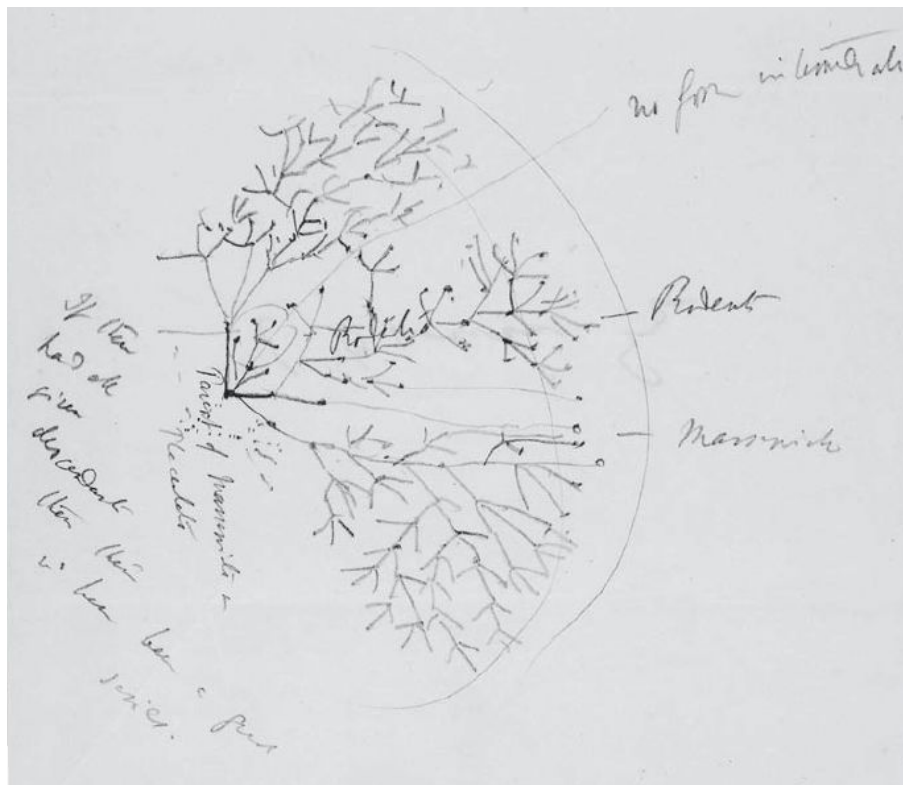 no form
Rodents
Rodents
Marsupials
Parent of Marsupials &
Placentals
If these
had all
given
descendants
then there
have been a great
series.